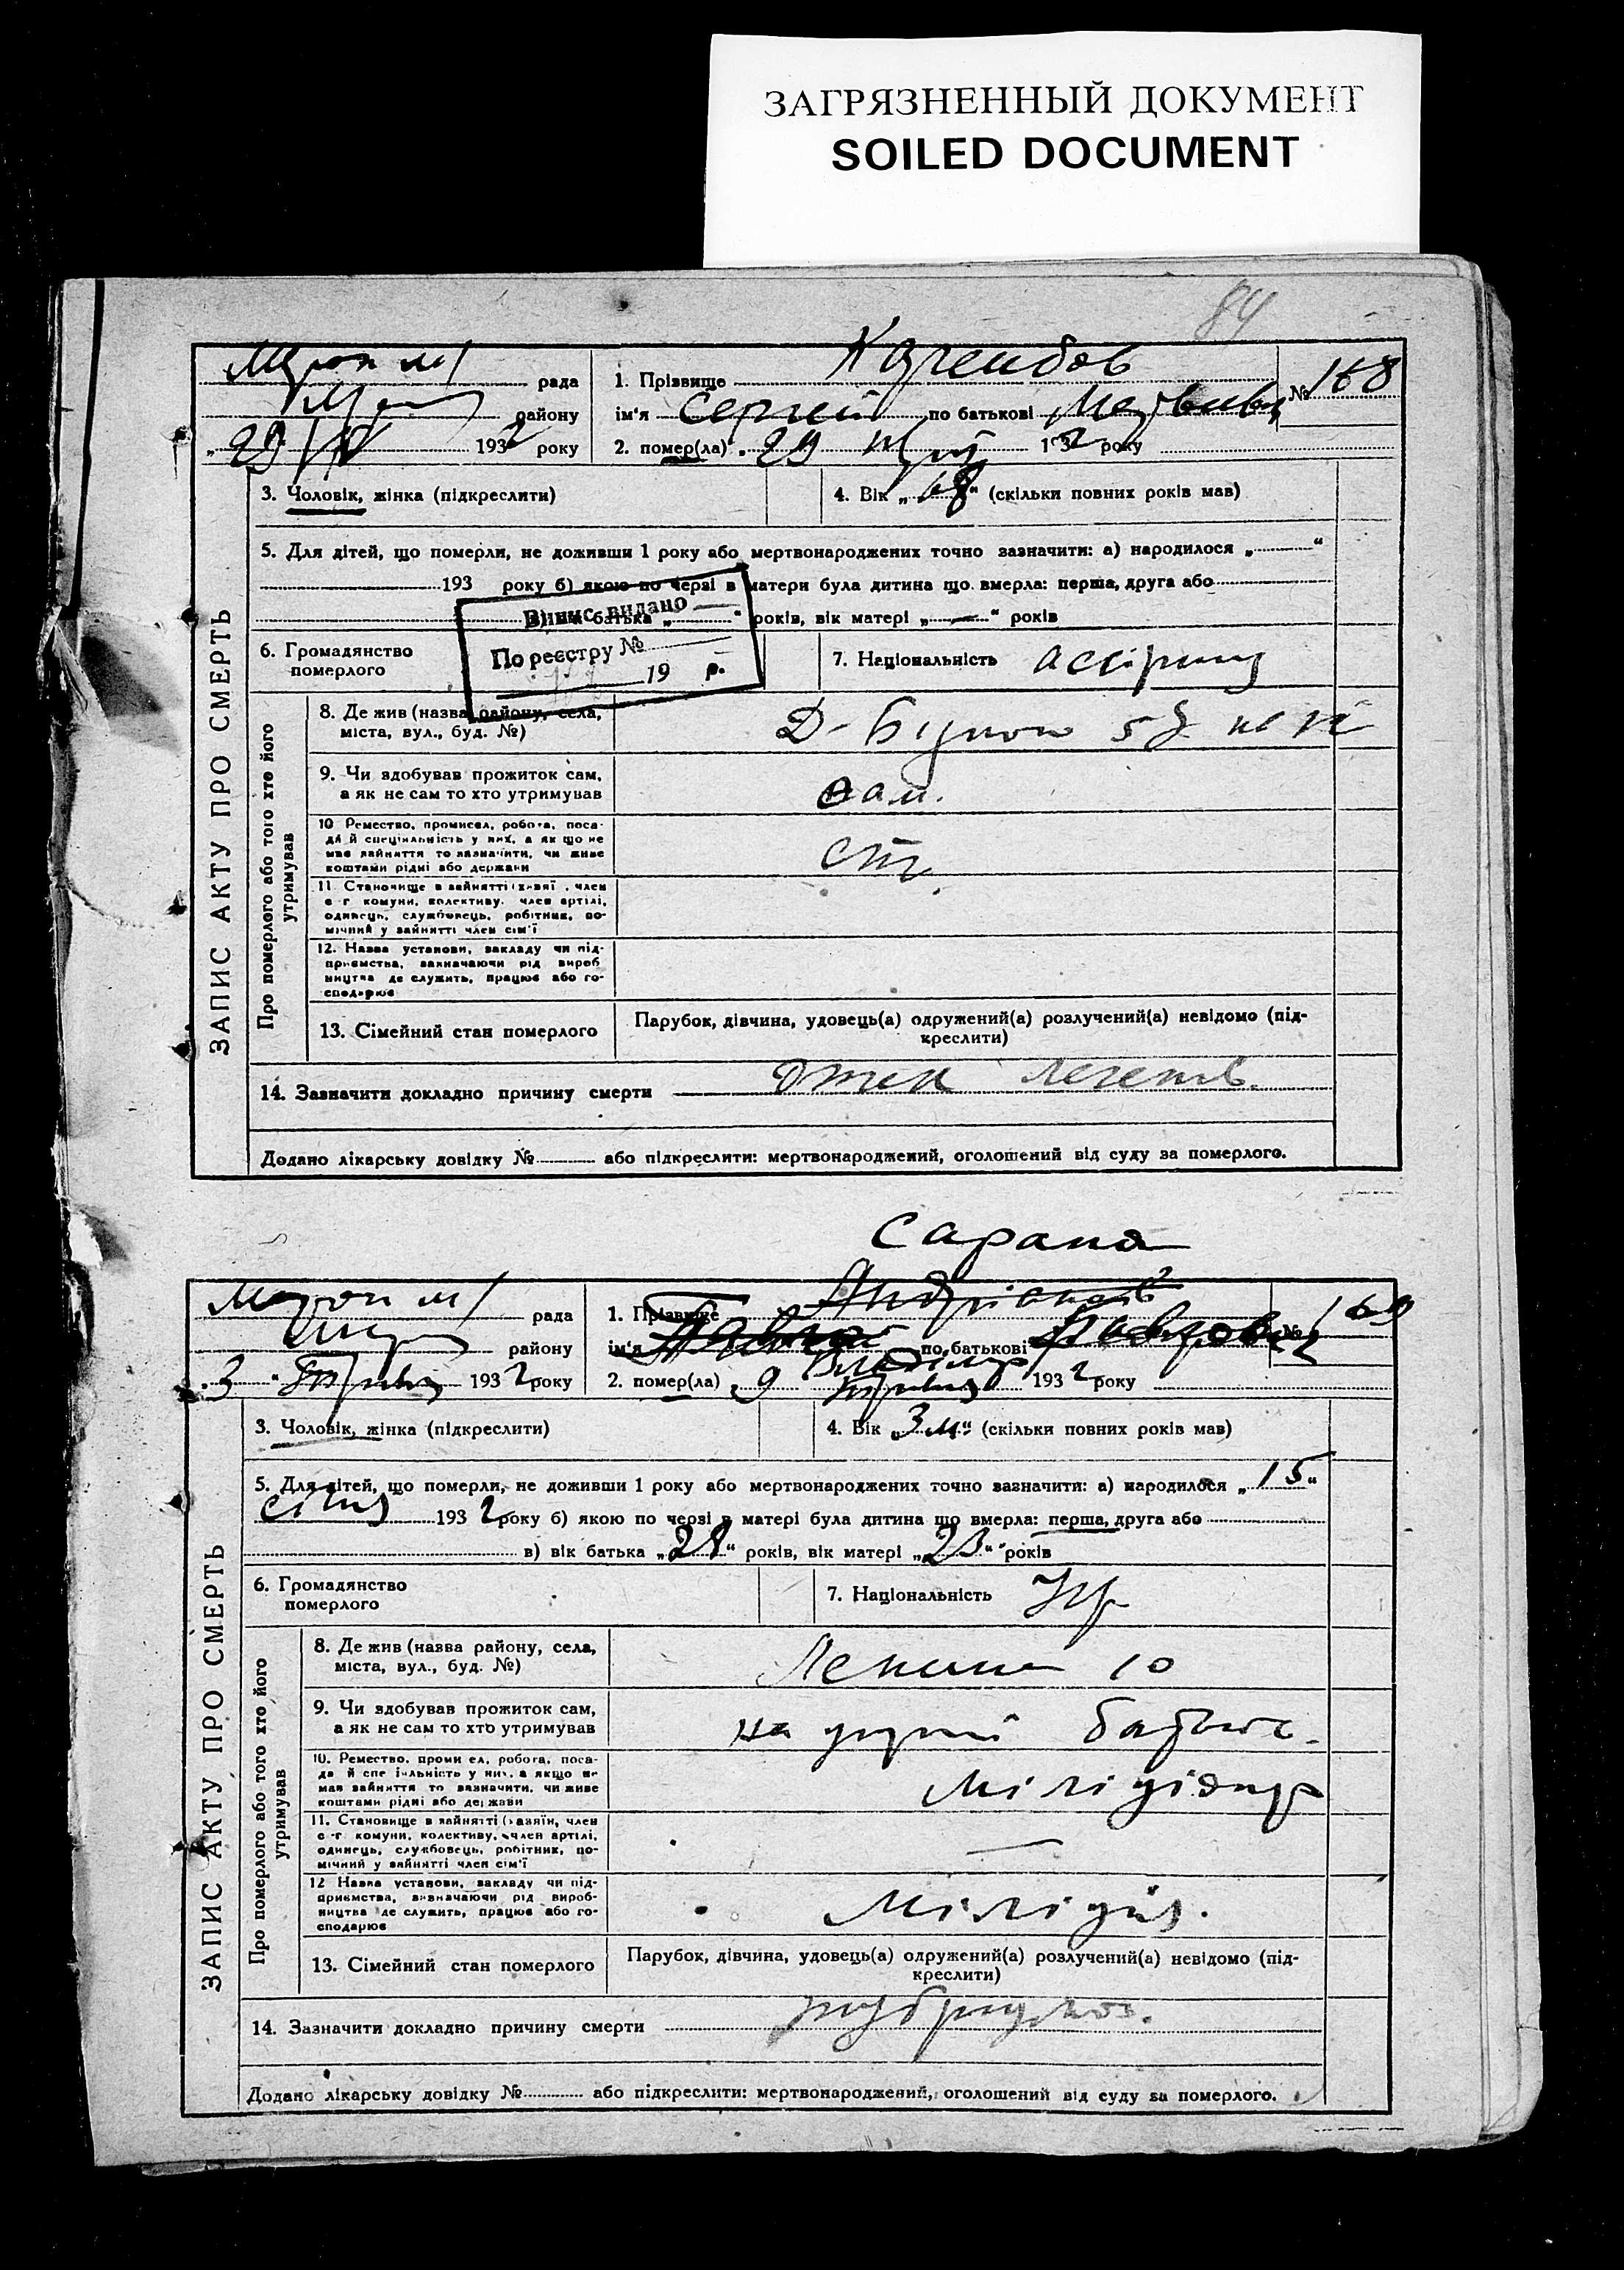 ЗАГРЯЗНЕННЫЙ ДОКУМЕНТ
SOILED DOCUMENT
84
рада
району
„29 1932 року
1. Прізвище
ім'я Сергей по батькові
№ 168
2. помер(ла) „29 1932 року
ЗАПИС АКТУ ПРО СМЕРТЬ
3. Чоловік, жінка (підкреслити)
4. Вік „68“ (скільки повних років мав)
5. Для дітей, що померли, не доживши 1 року або мертвонароджених точно зазначити: а) народилося „ “
193 року б) якою по черзі в матери була дитина що вмерла: перша, друга або
батька „ “ років, вік матері „—“ років
Випис видано
По реєстру №
19 р.
6. Громадянство померлого
7. Національність
Про померлого або того хто його утримував
8. Де жив (назва району, села,
міста, вул., буд. №)
9. Чи здобував прожиток сам,
а як не сам то хто утримував
сам.
10 Ремество, промисел, робота, поса-
да й спеціяльність у них, а як що не
мав зайняття то зазначити, чи живе
коштами рідні або держави
11. Становище в зайнятті член
с-г комуни, колективу, член артілі,
одинець, службовець, робітник, по-
мічний у зайнятті член сім'ї
12. Назва установи, закладу чи під-
приємства, зазначаючи рід вироб
ництва де служить, працює або го-
сподарює
13. Сімейний стан померлого
Парубок, дівчина, удовець(а) одружений(а) розлучений(а) невідомо (під-
креслити)
14. Зазначити докладно причину смерти
Додано лікарську довідку № або підкреслити: мертвонароджений, оголошений від суду за померлого.
Сарана
рада
району
1932 року
1. Прізвище
ім'я по батькові
№ 169
2. помер(ла) 1932 року
ЗАПИС АКТУ ПРО СМЕРТЬ
3. Чоловік, жінка (підкреслити)
4. Вік „3 м“ (скільки повних років мав)
5. Для дітей, що померли, не доживши 1 року або мертвонароджених точно зазначити: а) народилося „15“
січня 1932 року б) якою по черзі в матері була дитина що вмерла: перша, друга або
в) вік батька „28“ років, вік матері „23“ років
6. Громадянство
померлого
7. Національність Укр
Про померлого або того хто його утримував
8. Де жив (назва району, села,
міста, вул., буд. №)
Ленина 10
9. Чи здобував прожиток сам,
а як не сам то хто утримував
на утрим батька.
10. Ремество, промисел, робота, поса-
да й спеціяльність у них, а якщо не
мав зайняття то зазначити, чи живе
коштами рідні або держави
Міліціонер
11. Становище в зайнятті (хазяїн, член
с-г комуни, колективу, член артілі,
одинець, службовець, робітник, по-
мічний у зайнятті член сім'ї
—
12 Назва установи, закладу чи під-
приємства, зазначаючи рід вироб-
ництва де служить, працює або го-
сподарює
Міліція.
13. Сімейний стан померлого
Парубок, дівчина, удовець(а) одружений(а) розлучений(а) невідомо (під-
креслити)
14. Зазначити докладно причину смерти
Додано лікарську довідку № або підкреслити: мертвонароджений, оголошений від суду за померлого.